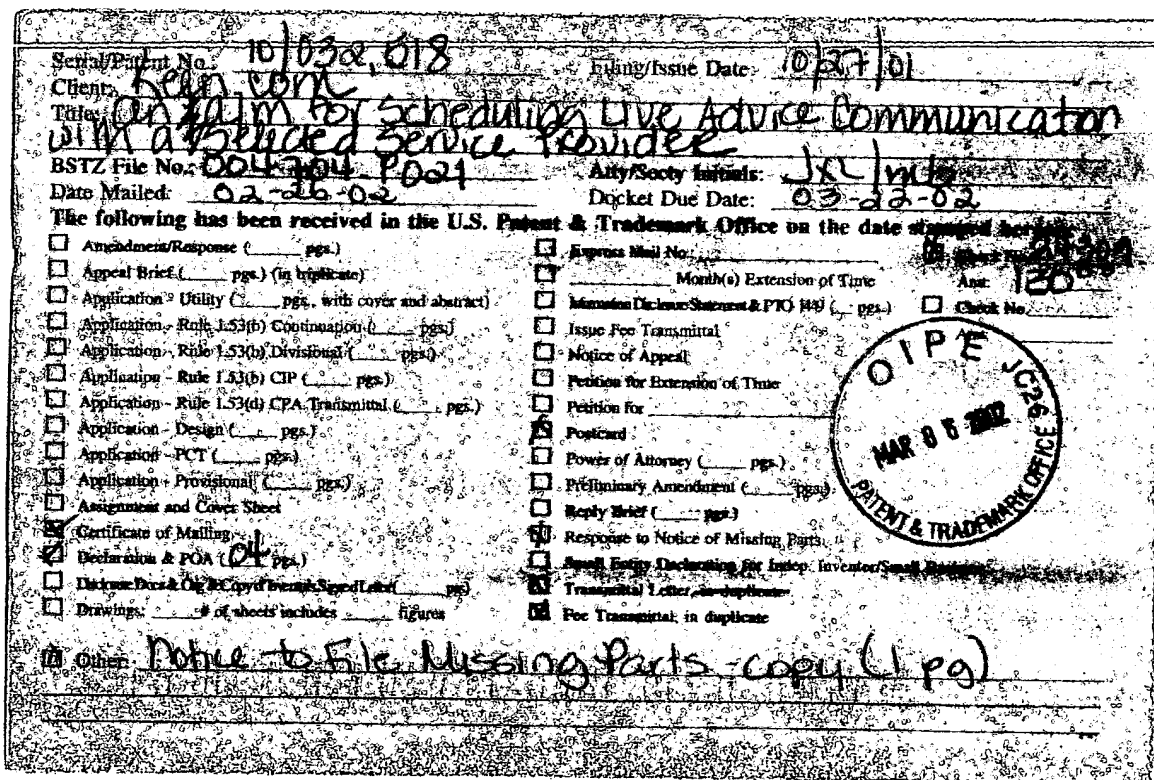 Serial/Patent No.: 10/032,018 Filing/Issue Date: 10/27/01
Client: Keen.com
Title: for Scheduling Live Advice Communication
with a Selected Service Provider
BSTZ File No.: 004704.P021 Atty/Secty Initials:
Date Mailed: 02-26-02 Docket Due Date: 03-22-02
The following has been received in the U.S. Patent & Trademark Office on the date stamped hereon:
Amendment/Response (____ pgs.)
Appeal Brief (____ pgs.) (in triplicate)
Application - Utility (____ pgs., with cover and abstract)
Application - Rule 1.53(b) Continuation (____ pgs.)
Application - Rule 1.53(b) Divisional (____ pgs.)
Application - Rule 1.53(b) CIP (____ pgs.)
Application - Rule 1.53(d) CPA Transmittal (____ pgs.)
Application - Design (____ pgs.)
Application - PCT (____ pgs.)
Application - Provisional (____ pgs.)
Assignment and Cover Sheet
Certificate of Mailing
Declaration & POA (04 pgs.)
Disclosure Docs & Orig & Copy of Inventors Signed Letter (____ pgs)
Drawings: ____ # of sheets includes ____ figures
Express Mail No.:
____ Month(s) Extension of Time Amt:
Information Disclosure Statement & PTO 1449 (____ pgs.) Check No.
Issue Fee Transmittal
Notice of Appeal
Petition for Extension of Time
Petition for
Postcard
Power of Attorney (____ pgs.)
Preliminary Amendment (____ pgs.)
Reply Brief (____ pgs.)
Response to Notice of Missing Parts
Small Entity Declaration for Indep. Inventor/Small
Transmittal Letter, in duplicate
Fee Transmittal, in duplicate
OIPE JC26
MAR 05 2002
PATENT & TRADEMARK OFFICE
Other: Notice to File Missing Parts - copy (1 pg)